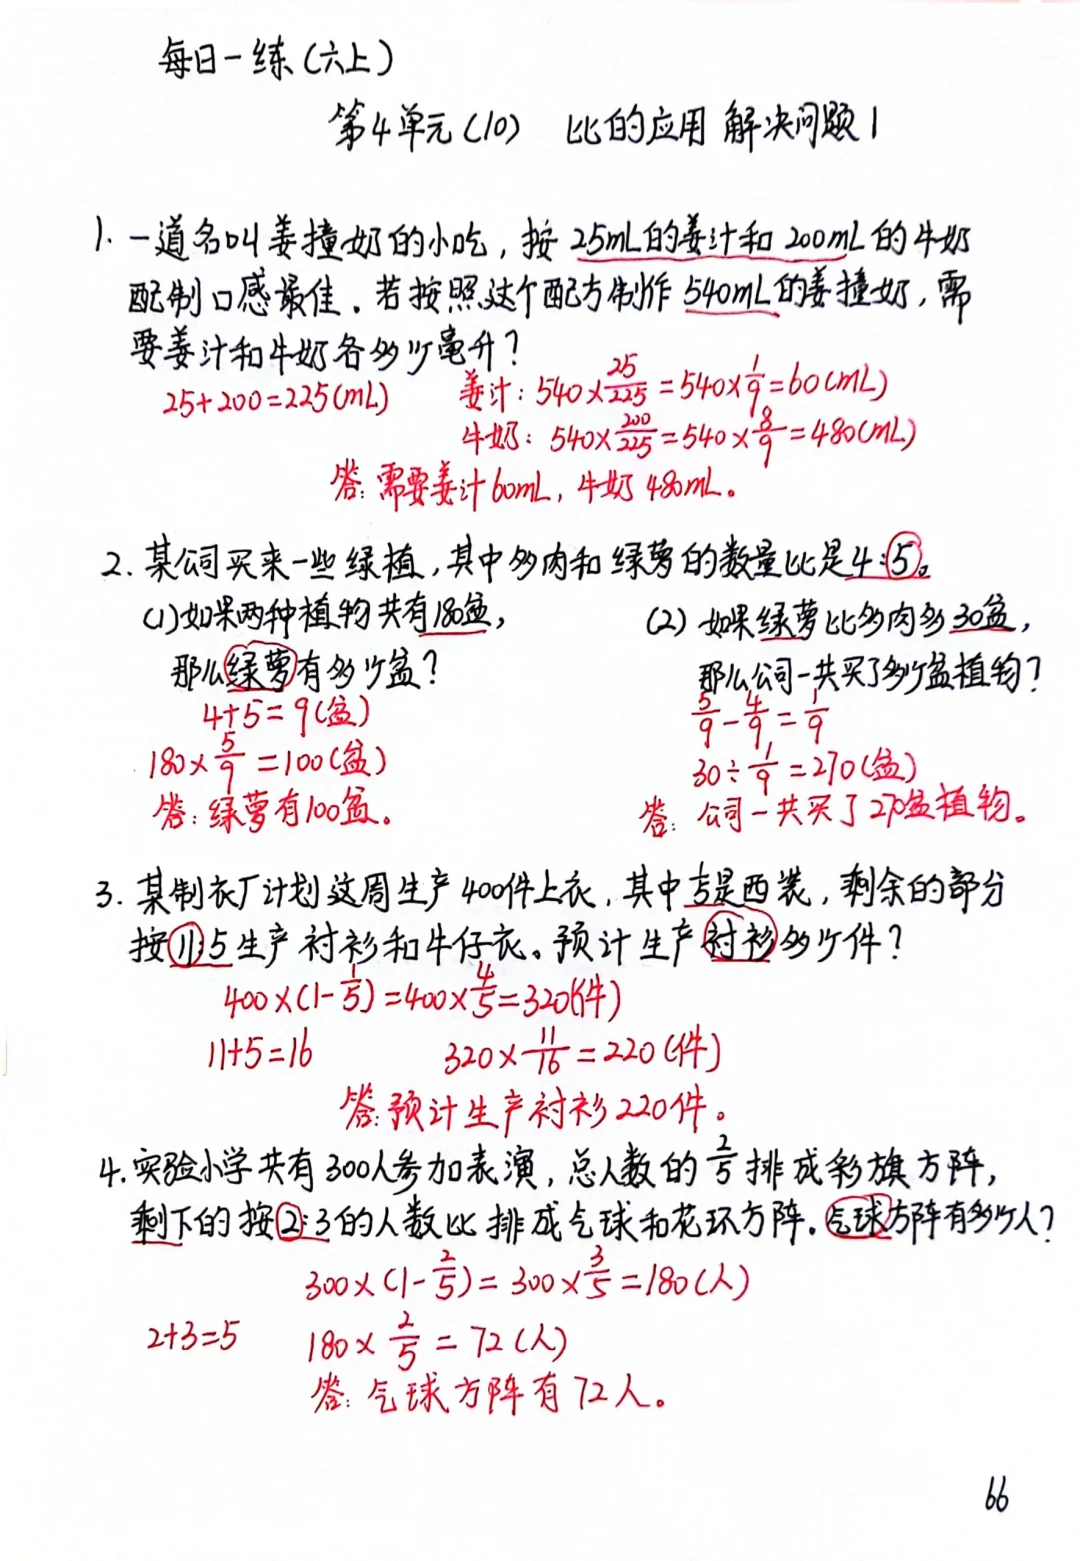 每日一练(六上)
第4单元(10) 比的应用 解决问题1
1. 一道名叫姜撞奶的小吃，按25mL的姜汁和200mL的牛奶
配制口感最佳。若按照这个配方制作540mL的姜撞奶，需
要姜汁和牛奶各多少毫升？
25+200=225(mL) 姜汁：540×25/225=540×1/9=60(mL)
牛奶：540×200/225=540×8/9=480(mL)
答：需要姜汁60mL，牛奶480mL。
2. 某公司买来一些绿植，其中多肉和绿萝的数量比是4:5。
(1)如果两种植物共有180盆，
那么绿萝有多少盆？
4+5=9(盆)
180×5/9=100(盆)
答：绿萝有100盆。
(2) 如果绿萝比多肉多30盆，
那么公司一共买了多少盆植物？
5/9-4/9=1/9
30÷1/9=270(盆)
答：公司一共买了270盆植物。
3. 某制衣厂计划这周生产400件上衣，其中1/5是西装，剩余的部分
按11:5生产衬衫和牛仔衣。预计生产衬衫多少件？
400×(1-1/5)=400×4/5=320(件)
11+5=16 320×11/16=220(件)
答：预计生产衬衫220件。
4. 实验小学共有300人参加表演，总人数的2/5排成彩旗方阵，
剩下的按2:3的人数比排成气球和花环方阵。气球方阵有多少人？
300×(1-2/5)=300×3/5=180(人)
2+3=5 180×2/5=72(人)
答：气球方阵有72人。
66